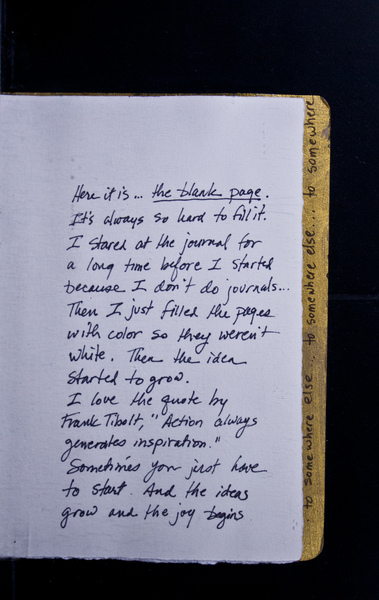 Here it is... the blank page.
It's always so hard to fill it.
I stared at the journal for
a long time before I started
because I don't do journals...
Then I just filled the pages
with color so they weren't
white. Then the idea
started to grow.
I love the quote by
Frank Tibolt, "Action always
generates inspiration."
Sometimes you just have
to start. And the ideas
grow and the joy begins
to somewhere else... to somewhere else... to somewhere